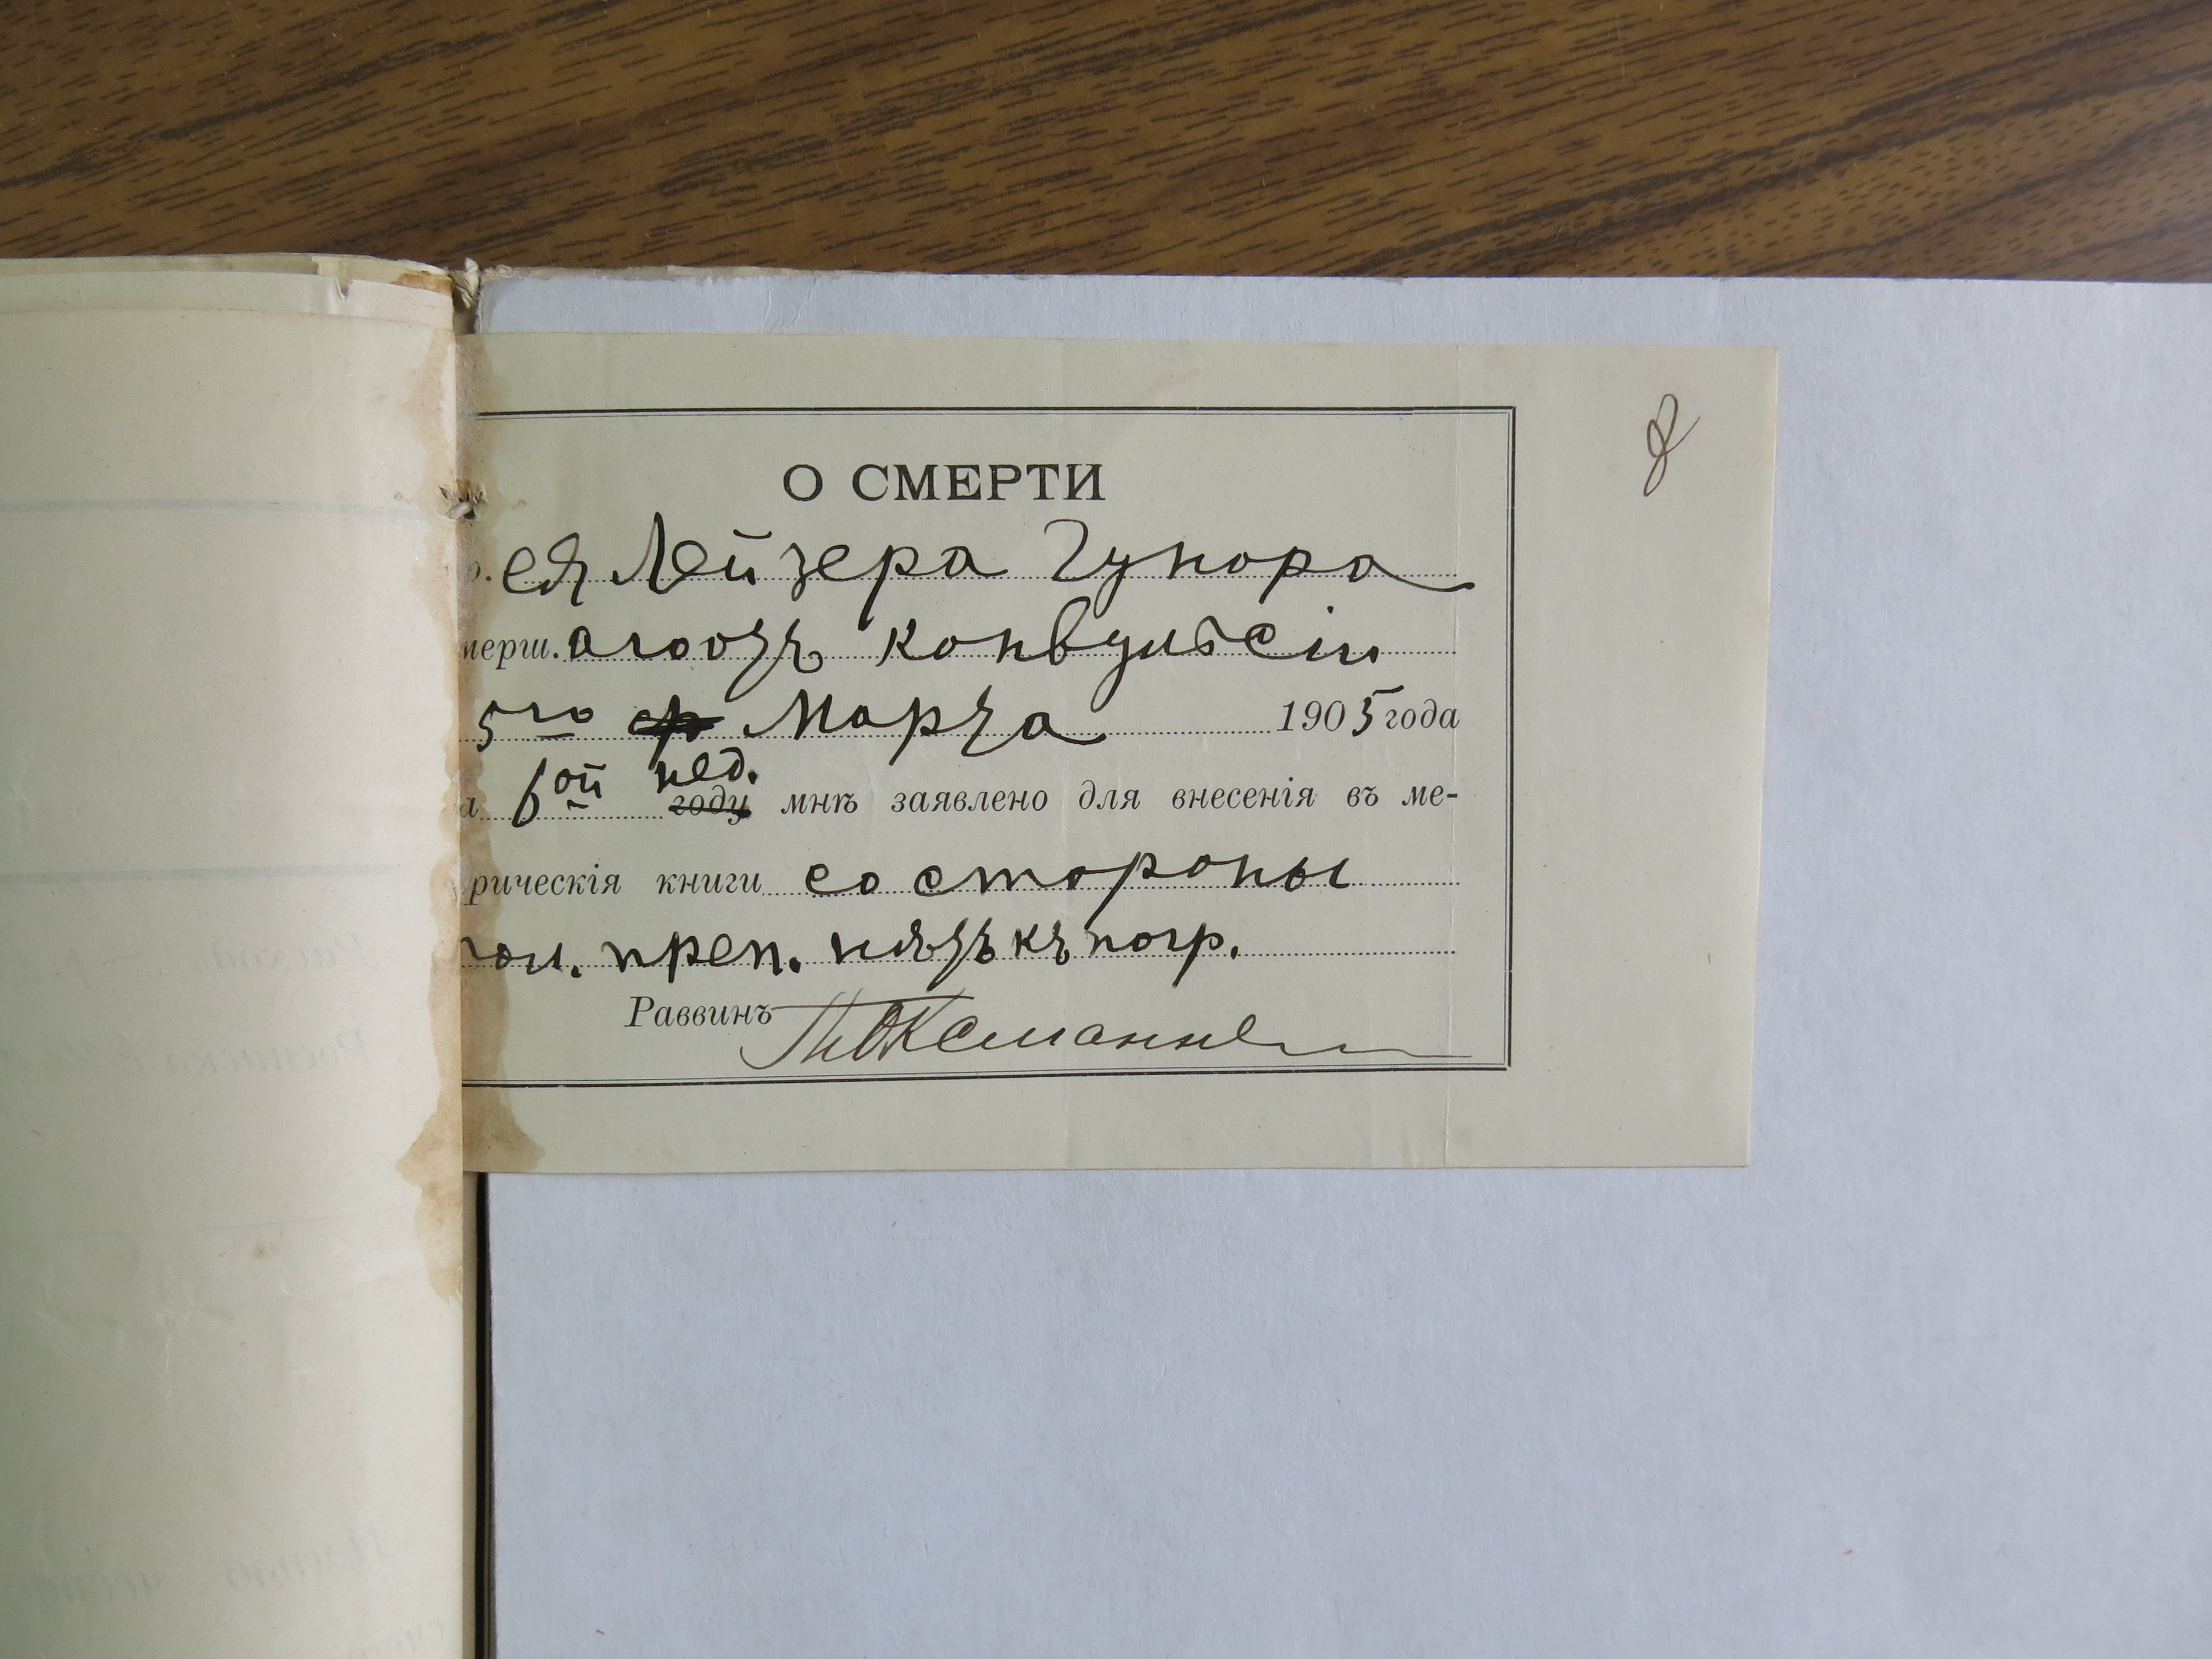 8
О СМЕРТИ
р. ея Лейзера Гунора
мерш. аго отъ конвульсіи
5го Марта 1905 года
а 6ой нед. году мнѣ заявлено для внесенія въ ме-
рическія книги со стороны
пол. преп. нѣтъ къ погр.
Раввинъ